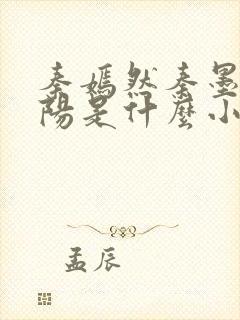 秦嫣然秦墨
阳是什麼小
孟辰